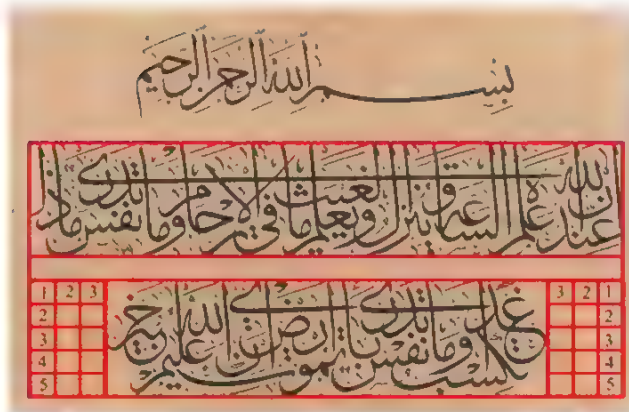 بسم الله الرحمن الرحيم
ان الله عنده علم الساعة وينزل الغيث ويعلم ما في الارحام وما تدرى نفس ماذا
تكسب غدا وما تدرى نفس باى ارض تموت ان الله عليم خبير
1 2 3 3 2 1
2 2
3 3
4 4
5 5